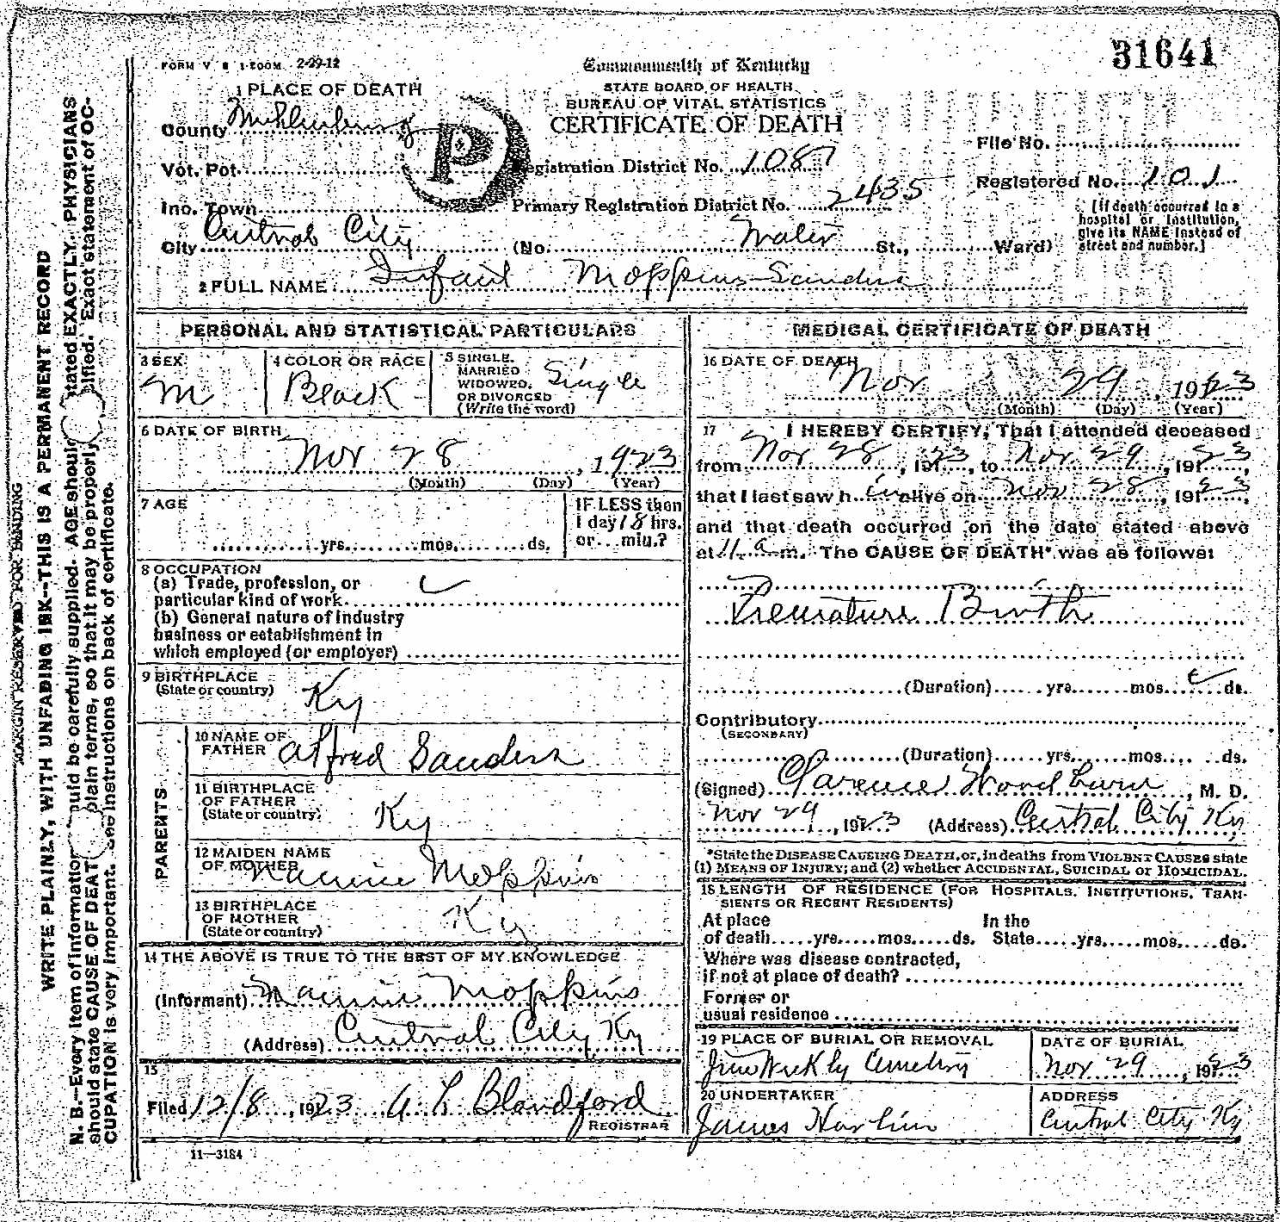 31641
FORM V S 1-100M 2-29-12
Commonwealth of Kentucky
STATE BOARD OF HEALTH
BUREAU OF VITAL STATISTICS
CERTIFICATE OF DEATH
1 PLACE OF DEATH
County Muhlenburg
P
Vot. Pct.
Inc. Town
City Central City
Registration District No. 1087
Primary Registration District No. 2435
(No. Water St., Ward)
File No.
Registered No. 101
[If death occurred in a
hospital or institution,
give its NAME instead of
street and number.]
2 FULL NAME Infant Moppins-Sanders
PERSONAL AND STATISTICAL PARTICULARS
3 SEX M
4 COLOR OR RACE Black
5 SINGLE, MARRIED WIDOWED, OR DIVORCED (Write the word) Single
6 DATE OF BIRTH
Nov 28, 1923
(Month) (Day) (Year)
7 AGE
yrs. mos. ds.
IF LESS than
1 day 18 hrs.
or min.?
8 OCCUPATION
(a) Trade, profession, or
particular kind of work
(b) General nature of industry
business or establishment in
which employed (or employer)
9 BIRTHPLACE
(State or country) Ky
PARENTS
10 NAME OF
FATHER Alfred Sanders
11 BIRTHPLACE
OF FATHER
(State or country) Ky
12 MAIDEN NAME
OF MOTHER Mannie Moppins
13 BIRTHPLACE
OF MOTHER
(State or country) Ky
14 THE ABOVE IS TRUE TO THE BEST OF MY KNOWLEDGE
(Informant) Mannie Moppins
(Address) Central City Ky
15
Filed 12/8, 1923 A L Blandford
REGISTRAR
11-3184
MEDICAL CERTIFICATE OF DEATH
16 DATE OF DEATH
Nov 29, 1923
(Month) (Day) (Year)
17 I HEREBY CERTIFY, That I attended deceased
from Nov 28, 1923, to Nov 29, 1923,
that I last saw him alive on Nov 28, 1923,
and that death occurred on the date stated above
at 11 a m. The CAUSE OF DEATH* was as follows:
Premature Birth
(Duration) yrs. mos. ds.
Contributory
(SECONDARY)
(Duration) yrs. mos. ds.
(Signed) Clarence Woodburn, M. D.
Nov 29, 1923 (Address) Central City Ky
*State the DISEASE CAUSING DEATH, or, in deaths from VIOLENT CAUSES state
(1) MEANS OF INJURY; and (2) whether ACCIDENTAL, SUICIDAL or HOMICIDAL.
18 LENGTH OF RESIDENCE (FOR HOSPITALS, INSTITUTIONS, TRAN-
SIENTS OR RECENT RESIDENTS)
At place In the
of death yrs. mos. ds. State yrs. mos. ds.
Where was disease contracted,
if not at place of death?
Former or
usual residence
19 PLACE OF BURIAL OR REMOVAL
Cemetery
DATE OF BURIAL
Nov 29, 1923
20 UNDERTAKER
James Harlin
ADDRESS
Central City Ky
MARGIN RESERVED FOR BINDING
WRITE PLAINLY, WITH UNFADING INK--THIS IS A PERMANENT RECORD
N. B.—Every item of information should be carefully supplied. AGE should stated EXACTLY. PHYSICIANS
should state CAUSE OF DEATH plain terms, so that it may be properly classified. Exact statement of OC-
CUPATION is very important. See instructions on back of certificate.